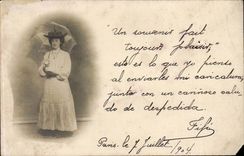 "Un souvenir fait
toujours plaisir",
esto es lo que yo pienso
al enviarles mi caricatura,
junto con un cariñoso salu-
do de despedida.
Fifi
Paris. le 7 Juillet/904